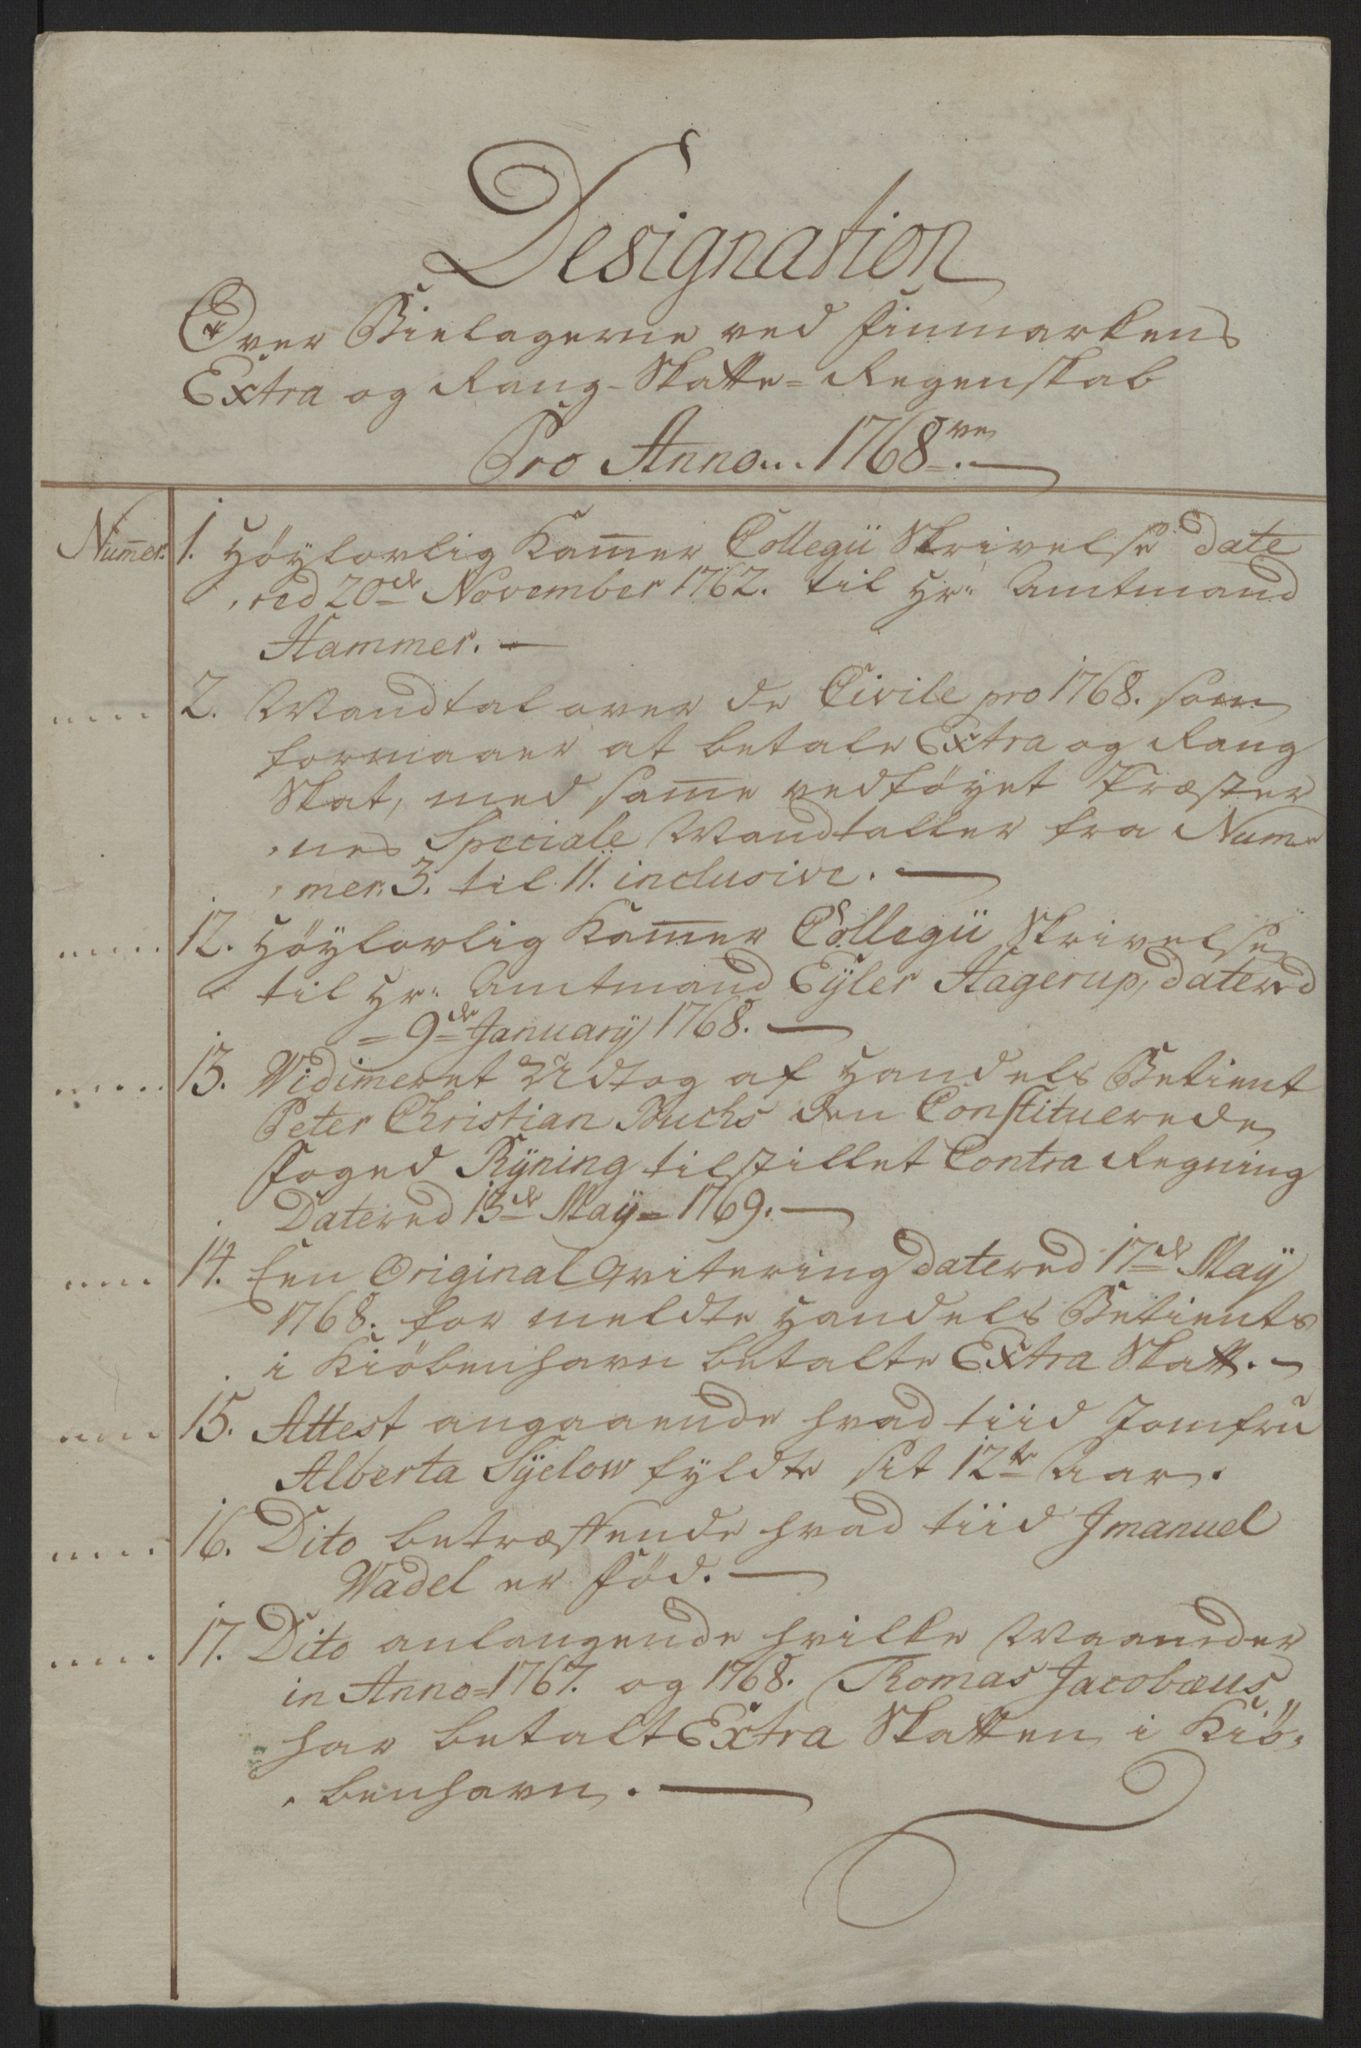 Designation
Over Bielagerne ved Finmarkens
Extra og Rang-Skatte-Regenskab
Pro Anno... 1768ve
Num̅er. 1. Høylovlig Kam̅er Collegii Skrivelse date
red 20de November 1762. til Hr: Amtmand
Hammer.
2. Mandtal over de Civile pro 1768. som
formaaer at betale Extra og Rang
Skat, med sam̅e vedføyet Præster
nes Speciale Mandtaller fra Num
mer. 3. til 11. inclusive.
12. Høylovlig Kam̅er Collegii Skrivelse
til Hr: Amtmand Eÿler Hagerup, datered
= 9de Januarÿ 1768.
13. Vidim̅eret Udtog af Handels Betient
Peter Christian Buchs den Constituerede
Foged Rÿning tilstillet Contra Regning
Datered 13de Maÿ = 1769.
14. Een Original Qvitering datered 17de Maÿ
1768. for meldte Handels Betients
i Kiöbenhavn betalte Extra Skatt.
15. Attest angaaende hvad tiid Jomfru
Alberta Sÿelow fyldte sit 12te Aar.
16. Dito betræffende hvad tiid Jmanuel
Wadel er fød.
17. Dito anlangende hvilke Maaneder
in Anno=1767. og 1768. Thomas Jacobæus
har betalt Extra Skatten i Kiö-
benhavn.